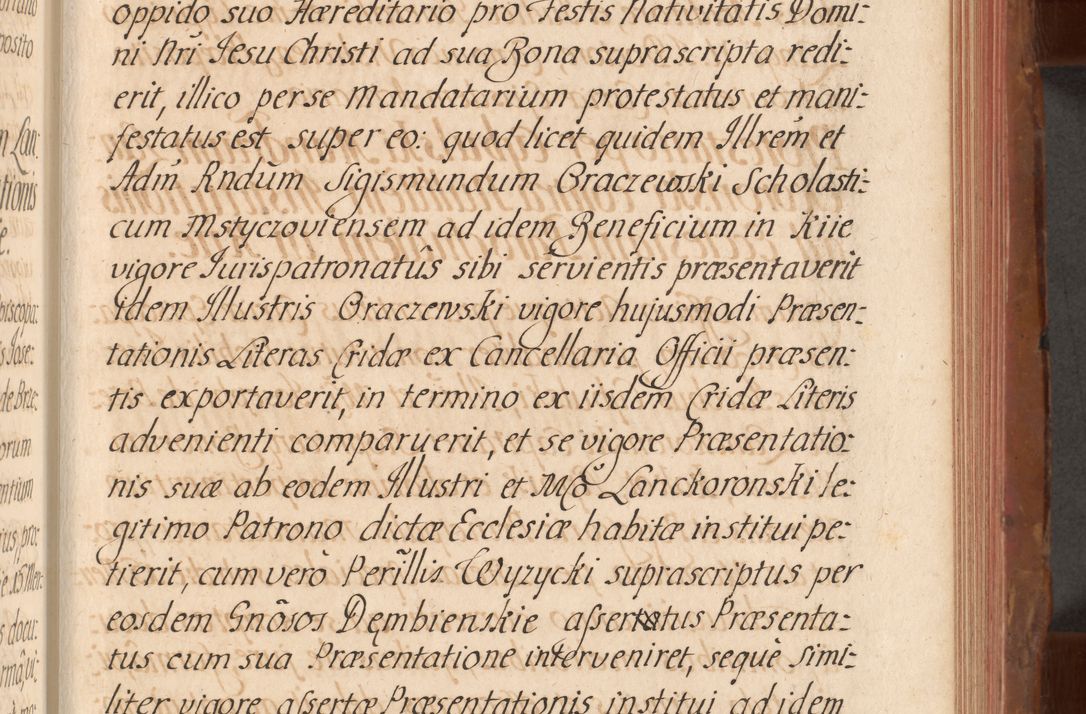 oppido suo Hæreditario pro Festis Nativitatis Domi:
ni Nrı̃ Jesu Christi ad sua Bona suprascripta redi:
erit, illico per se Mandatarium protestatus et mani:
festatus est super eo: quod licet quidem Illrem̃ et
Adm̃ Rndũm Sigismundum Oraczewski Scholasti:
cum Mstyczoviensem ad idem Beneficium in Kiie
vigore Jurispatronatûs sibi servientis præsentaverit
idem Illustris Oraczewski vigore hujusmodi Præsen:
tationis Literas Cridæ ex Cancellaria Officii præsen:
tis exportaverit, in termino ex iisdem Cridæ Literis
advenienti comparuerit, et se vigore Præsentatio:
nis suæ ab eodem Illustri et Mc̃o Lanckoronski le:
gitimo Patrono dictæ Ecclesiæ habitæ institui pe:
tierit, cum verò Perĩllis Wyzycki suprascriptus per
eosdem Gnõsos Dembienskie assertus Præsenta:
tus cum sua Præsentatione interveniret, sequè simi:
liter vigore assertæ Præsentationis institui ad idem
posito
n Lan:
tionis
piscopa:
s Jose:
de Brze:
orum
entium
ius, pro:
ie 15 Mer:
s docu:
rmâ, vi: